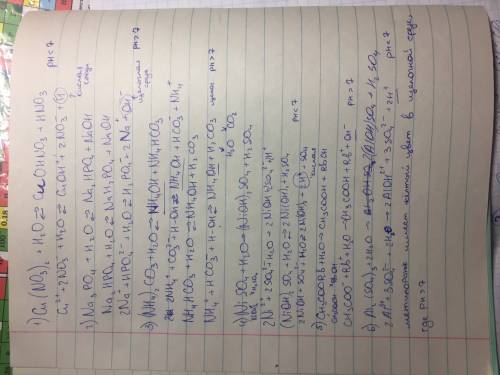 1) Cu(NO3)2 + H2O ⇄ CuOHNO3 + HNO3 pH<7
Cu²⁺ + 2NO3⁻ + H2O ⇄ CuOH⁺ + 2NO3⁻ + H⁺ кислая среда
2) Na3PO4 + H2O ⇄ Na2HPO4 + NaOH
Na2HPO4 + H2O ⇄ NaH2PO4 + NaOH
2Na⁺ + HPO4²⁻ + H2O ⇄ H2PO4⁻ + 2Na⁺ + OH⁻
3) (NH4)2CO3 + H2O ⇄ NH4OH + NH4HCO3 щелочная среда pH>7
2NH4⁺ + CO3²⁻ + H-OH ⇄ NH4OH + HCO3⁻ + NH4⁺
NH4HCO3 + H-OH ⇄ NH4OH + H2CO3
NH4⁺ + HCO3⁻ + H-OH ⇄ NH4OH + H2CO3 pH>7
H2O CO2
4) Ni2SO4 + H2O → (NiOH)2SO4 + H2SO4
2Ni⁺ + 2SO4²⁻ + H2O → 2NiOH + SO4²⁻ + H⁺
(NiOH)2SO4 + H2O → 2Ni(OH)2 + H2SO4 pH<7
2NiOH + SO4 + H2O → 2Ni(OH)2 + H⁺ + SO4 кислая
5) CH3COORb + H2O → CH3COOH + RbOH
CH3COOH RbOH
CH3COO⁻ + Rb⁺ + H2O → CH3COOH + Rb⁺ + OH⁻ pH>7
6) Al2(SO4)3 + 2H2O → 2(AlOH)SO4 + H2SO4
2Al³⁺ + 3SO4²⁻ + 2H2O → 2AlOH²⁺ + 3SO4²⁻ + 2H⁺ pH<7
метилоранж имеет желтый цвет в щелочной среде,
где pH>7